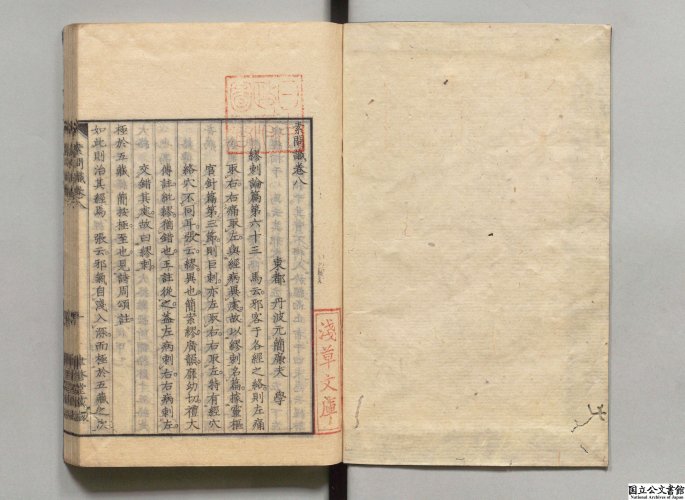 素問識卷八
東都 丹波元簡廉夫 學
繆刺論篇第六十三 馬云邪客于各經之絡則左痛
取右右痛取左與經病異處故以繆刺名篇據靈樞
官針篇第三節則巨刺亦左取右右取左特有經穴
絡穴不同耳張云繆異也簡案繆廣韻靡幼切禮大
傳註紕繆猶錯也王註從之蓋左病刺右右病刺左
交錯其處故曰繆刺
極於五藏 簡按極至也見詩周頌註
如此則治其經焉 張云邪氣自淺入深而極於五藏之次
素問識卷八
淺草文庫
国立公文書館
National Archives of Japan